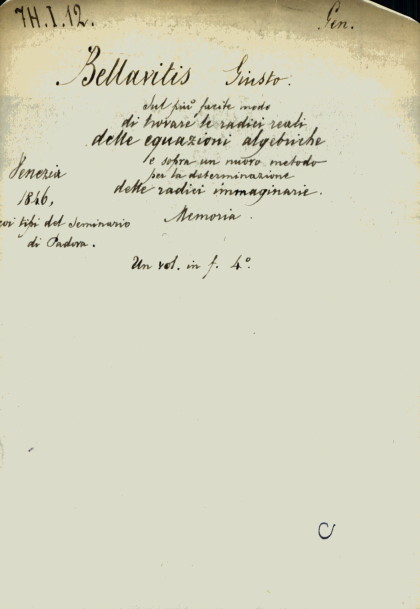 7H.I.12.
Gen.
Bellavitis Giusto.
Sul più facile modo
di trovare le radici reali
delle equazioni algebriche
e sopra un nuovo metodo
per la determinazione
delle radici immaginarie.
Memoria.
Venezia
1846,
coi tipi del Seminario
di Padova.
Un vol. in f. 4º.
C